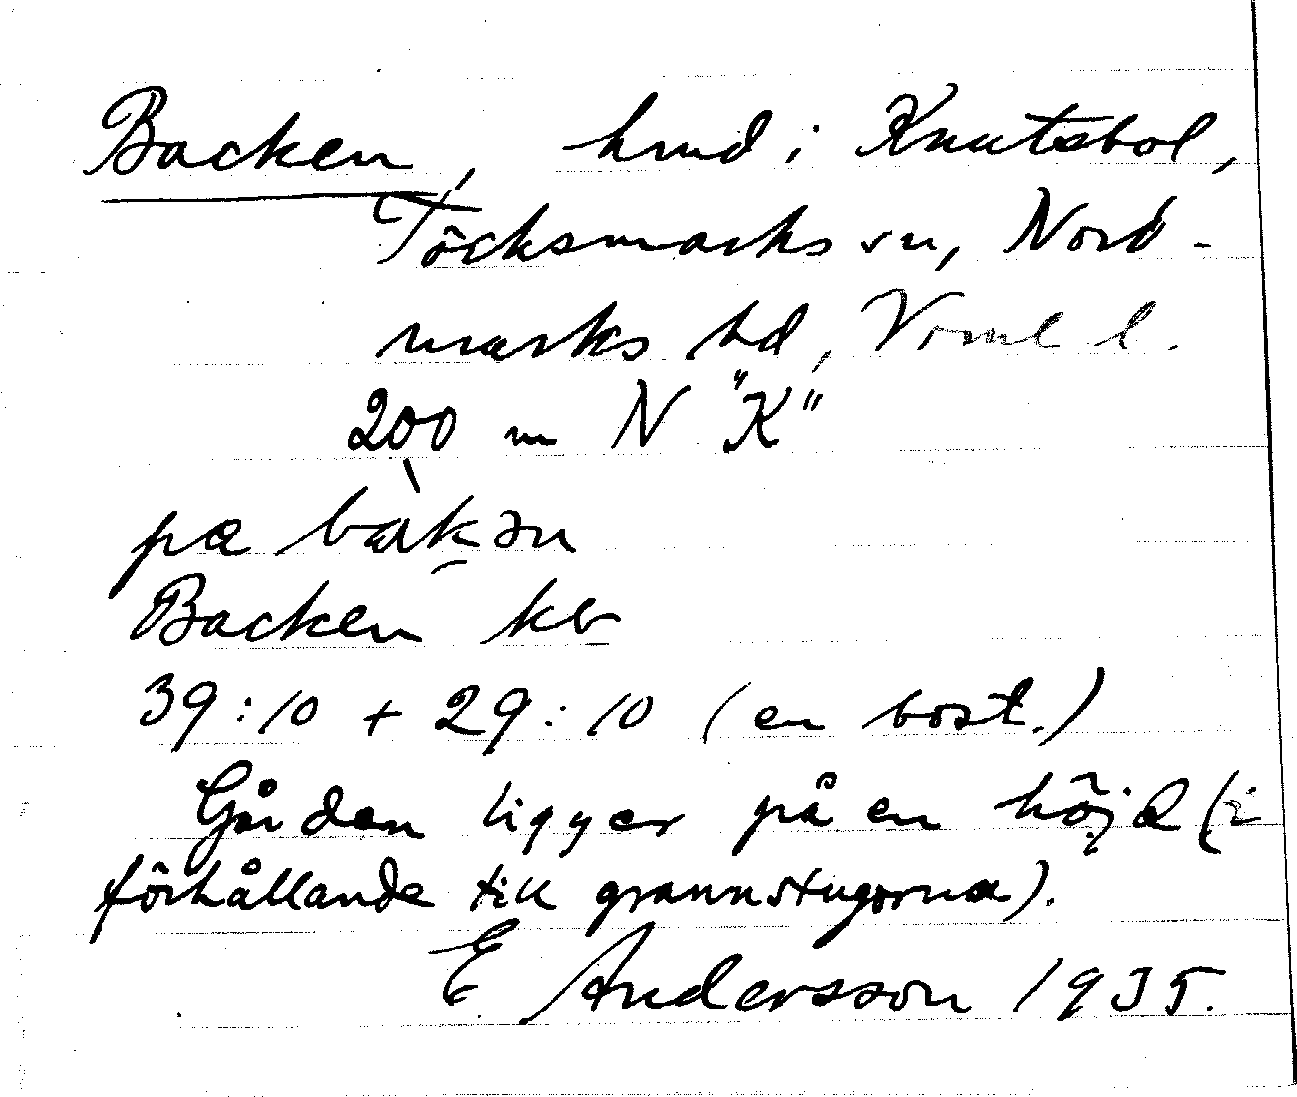 Backen, hmd i Knutsbol,
Töcksmarks sn, Nord-
marks hd, Värml l.
200 m N "K"
pa bàkən
Backen kb
39:10 + 29:10 (en bost.)
Gården ligger på en höjd (i
förhållande till grannstugorna).
E Andersson 1935.